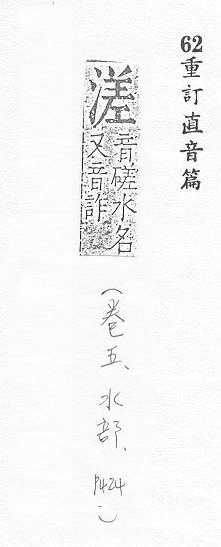 62重訂直音篇
溠
音磋水名
又音詐
(卷五、水部、P424)